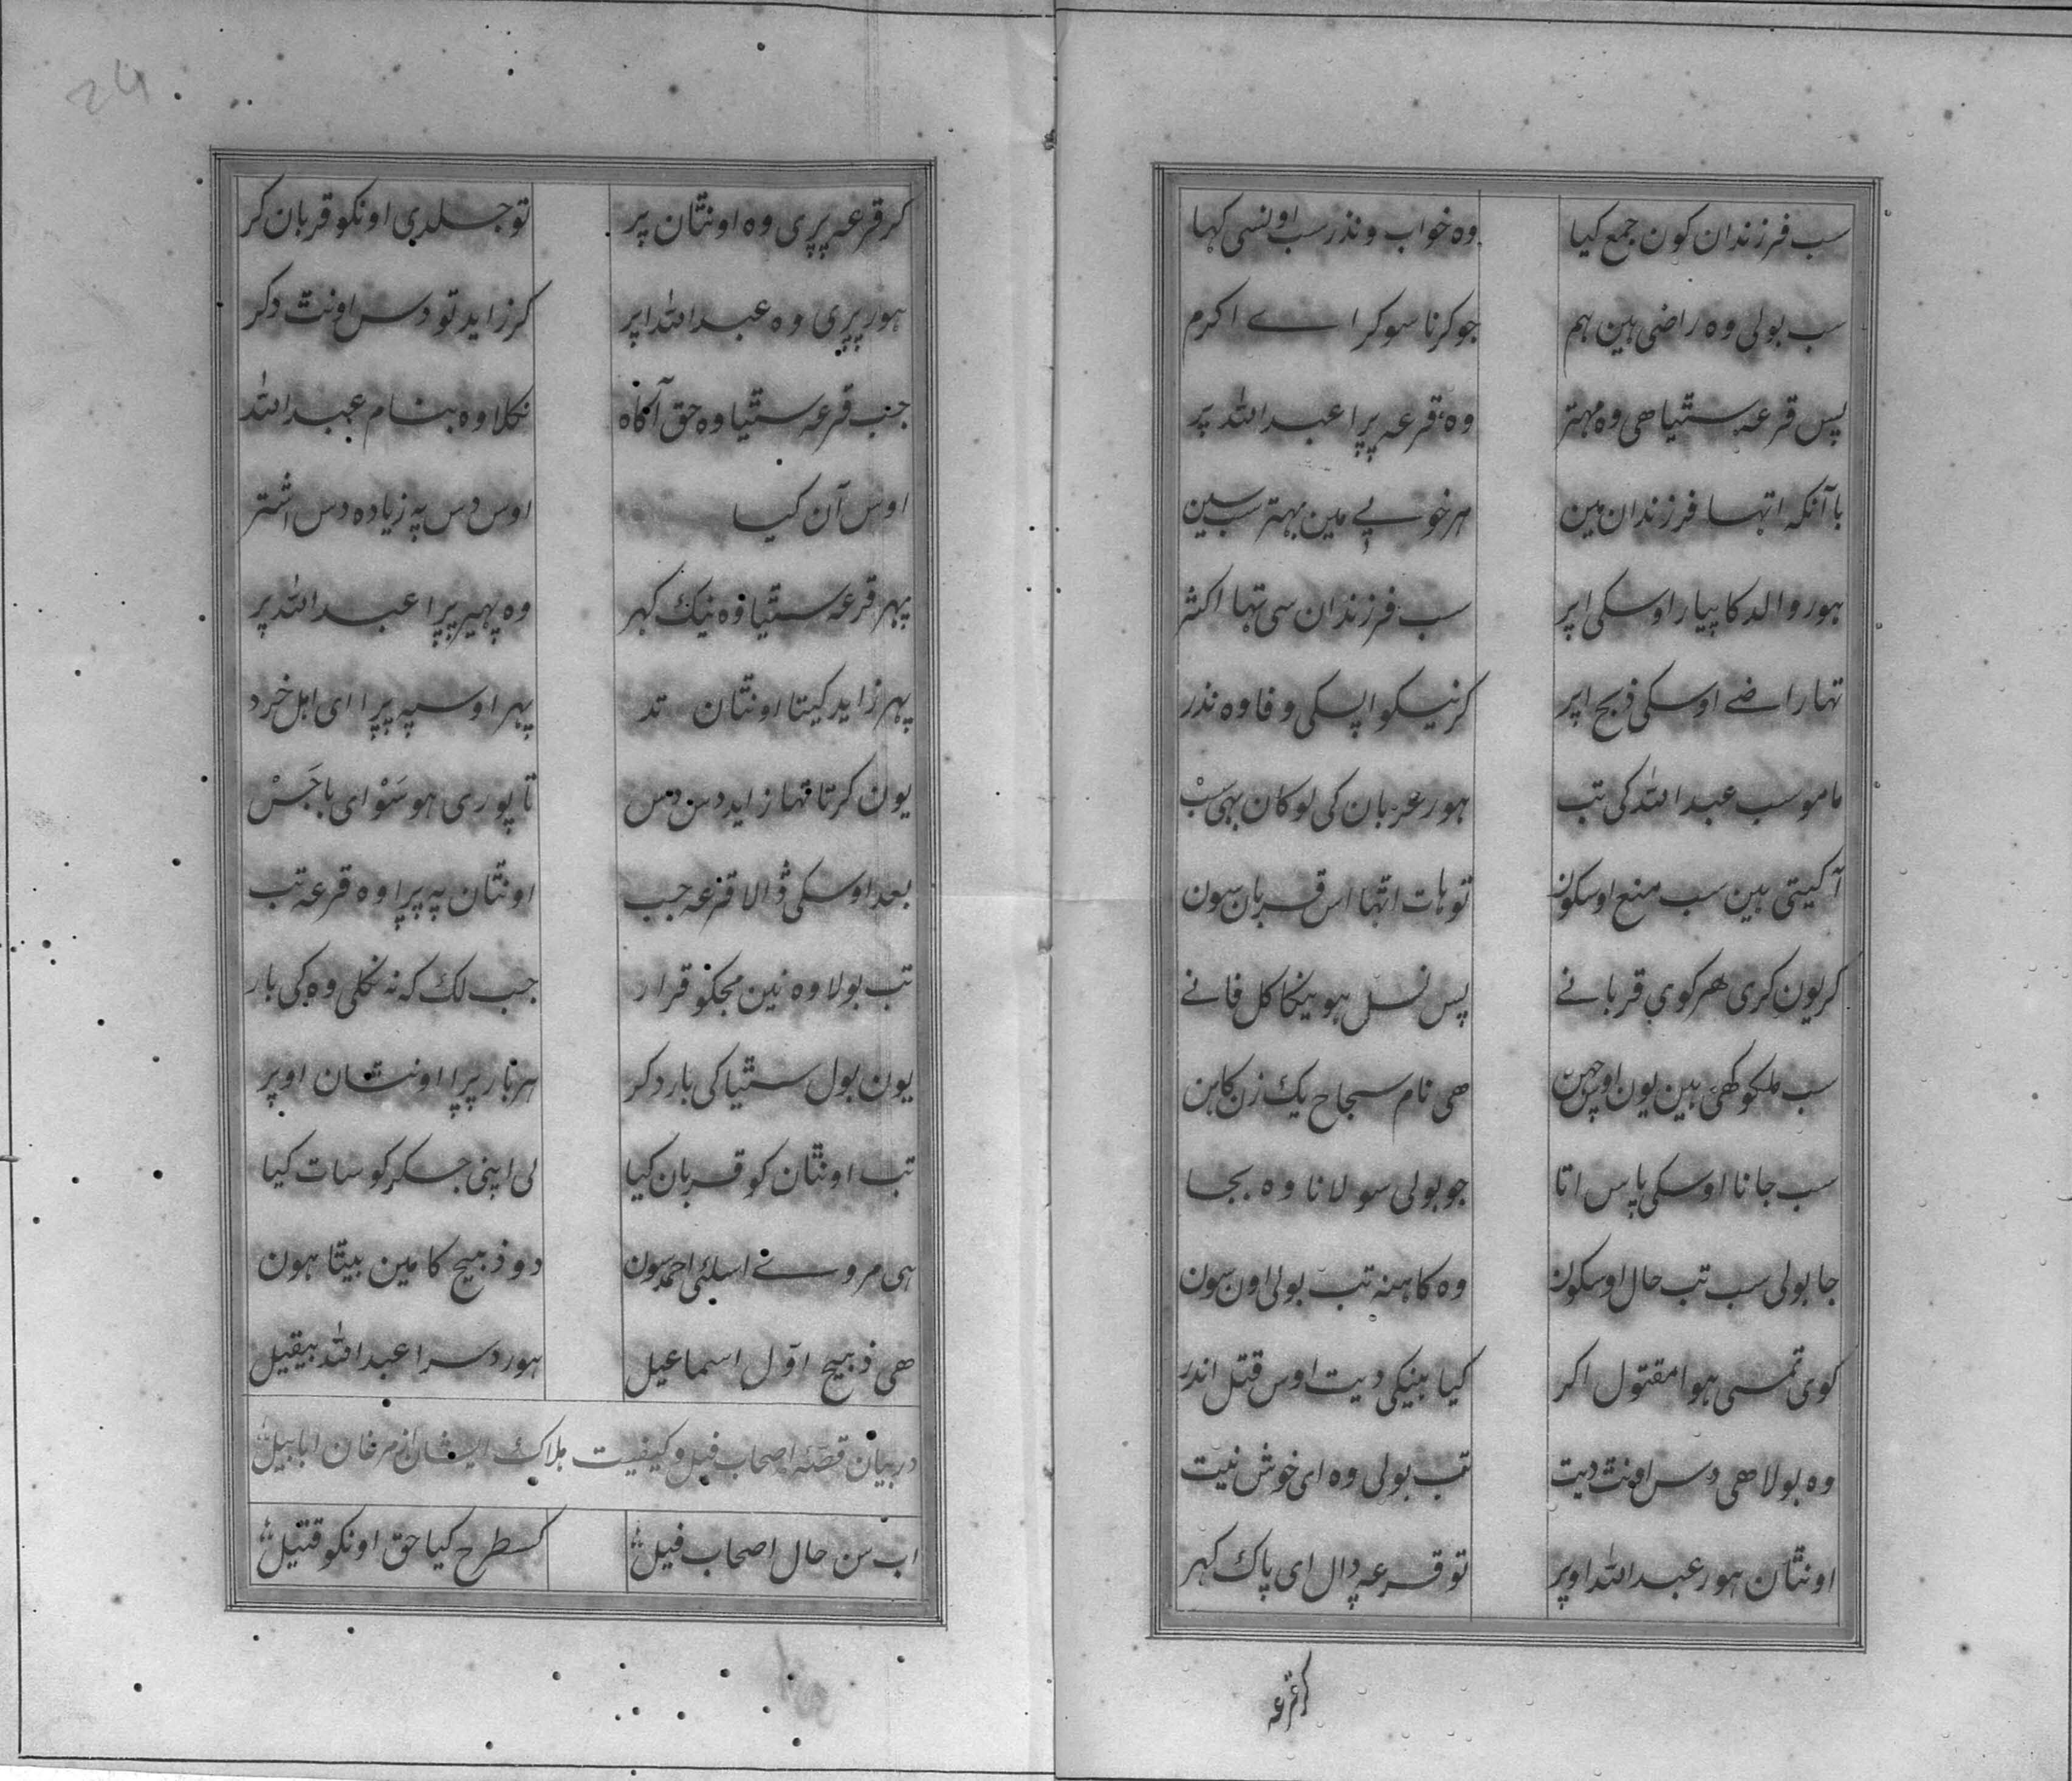 سب فرزندان کون جمع کیا وہ خواب و نذر سب اونسی کہا
سب بولی وہ راضی ہین ہم جو کرنا سو کر اے اکرم
پس قرعہ سٹیا ھی وہ مہتر وہ قرعہ پڑا عبداللہ پر
با آنکہ اتہا فرزندان مین ہر خوبے مین بہتر سب سین
ہور والد کا پیار اوسکی اپر سب فرزندان سی تہا اکثر
تہا راضے اوسکی ذبح اپر کرنیکو اپسکی وفا وہ نذر
مامو سب عبداللہ کی تب ہور عربان کی لوکان بہی سب
آکیتی ہین سب منع اوسکون تو ہات اتہا اس قربان سون
کر یون کری ھر کوی قربانے پس نسل ہوینکا کل فانے
سب ملکو کھی ہین یون ھی نام سجاح یک زن کاہن
سب جانا اوسکی پاس اتا جو بولی سو لانا وہ بجا
جا بولی سب تب حال اوسکون وہ کاہنہ تب بولی اون سون
کوی تمسی ہوا مقتول اکر کیا بینکی دیت اوس قتل اندر
وہ بولا ھی دس اونٹ دیت تب بولی وہ ای خوش نیت
اونٹان ہور عبداللہ اوپر تو قرعہ ڈال ای پاک کہر
کر قرعہ
کر قرعہ پڑی وہ اونٹان پر تو جلدی اونکو قربان کر
ہور پڑی وہ عبداللہ اپر کر زاید تو دس اونٹ دکر
جب قرعہ سٹیا وہ حق آکاہ نکلا وہ بنام عبداللہ
اوس آن کیا اوس دس پہ زیادہ دس اشتر
پہر قرعہ سٹیا وہ نیک کہر وہ پہیر پڑا عبداللہ پر
پہر زاید کیتا اونٹان تد پہر اوسپہ پڑا ای اہل خرد
یون کرتا تہا زاید دس دس تا پوری ہو سَوْ ای باجَسْ
بعد اوسکی ڈالا قرعہ جب اونٹان پہ پڑا وہ قرعہ تب
تب بولا وہ نین مجکو قرار جب لک کہ نہ نکلی وہ کی بار
یون بول سٹیا کی بار دکر ہر بار پڑا اونٹان اوپر
تب اونٹان کو قربان کیا لی اپنی جسکر کو سات کیا
ہی مروے اسلئی احمد سون دو ذبیح کا مین بیٹا ہون
ھی ذبیح اوّل اسماعیل ہور دسرا عبداللہ بیقیل
در بیان قصّہ اصحاب فیل و کیفیت ہلاک ایشان از مرغان ابابیل
اب سن حال اصحاب فیل کسطرح کیا حق اونکو قتیل